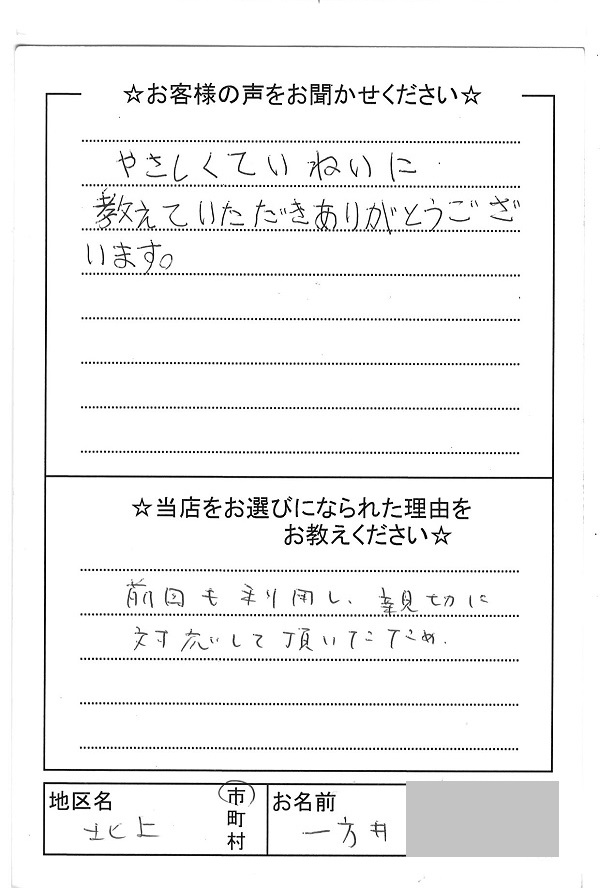 ☆お客様の声をお聞かせください☆
やさしくていねいに
教えていただきありがとうござ
います。
☆当店をお選びになられた理由を
お教えください☆
前回も利用し、親切に
対応して頂いたため.
地区名
北上
市
町
村
お名前
一方井